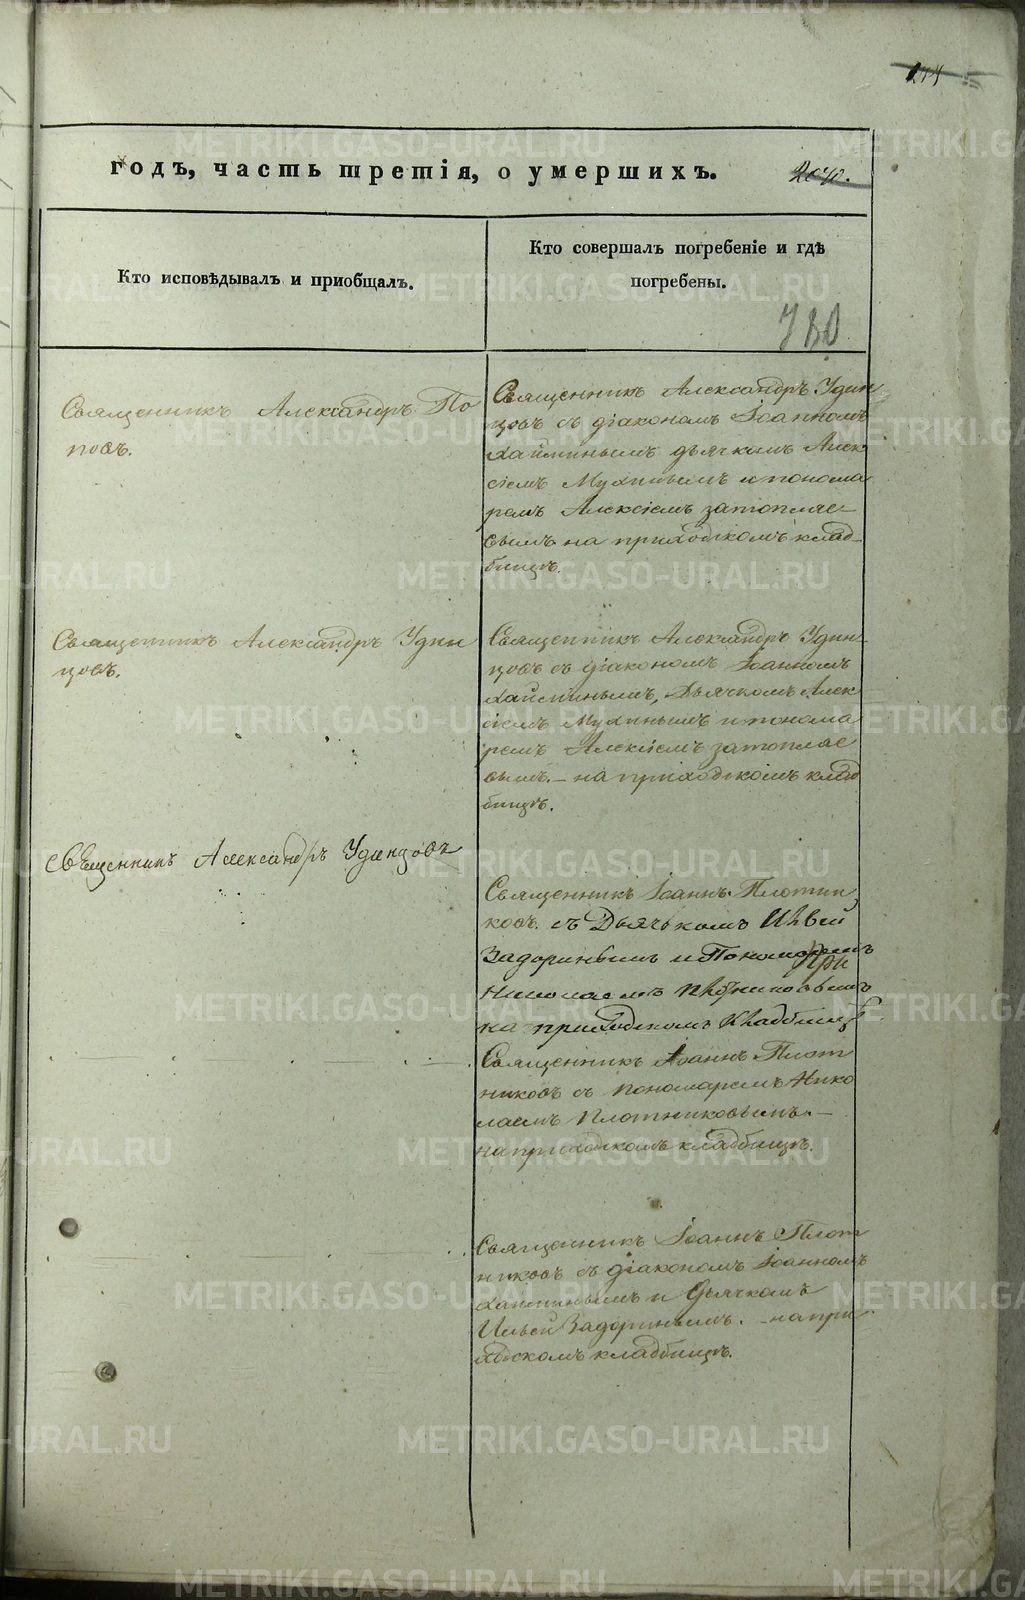 годъ, часть третія, о умершихъ.
Кто исповѣдывалъ и приобщалъ.
Кто совершалъ погребеніе и гдѣ
погребены.
Священникъ Александръ По
повъ.
Священникъ Александръ Удин
цовъ съ діакономъ Іоанномъ
Хайминымъ дьячкомъ Алек
сіемъ Мухинымъ и понома
ремъ Алексіемъ Затопляе
вымъ на приходскомъ клад
бищѣ.
Священникъ Александръ Удин
цовъ.
Священникъ Александръ Удин
цовъ съ діакономъ Іоанномъ
Хайминымъ, Дьячкомъ Алек
сіемъ Мухинымъ и понома
ремъ Алексіемъ Затопляе
вымъ. – на приходскомъ клад
бищѣ.
Священникъ Александръ Удинцовъ
Священникъ Іоаннъ Плотни
ковъ съ Дьячкомъ
Задоринымъ и Пономаремъ
Николаемъ
на приходскомъ Кладбищѣ
Священникъ Іоаннъ Плот
никовъ съ пономаремъ Нико
лаемъ Плотниковымъ. –
на приходскомъ кладбищѣ.
Священникъ Іоаннъ Плот
никовъ съ діакономъ Іоанномъ
Хайминымъ и Дьячкомъ
Ильей Задоринымъ. на при
ходскомъ кладбищѣ.
METRIKI.GASO-URAL.RU